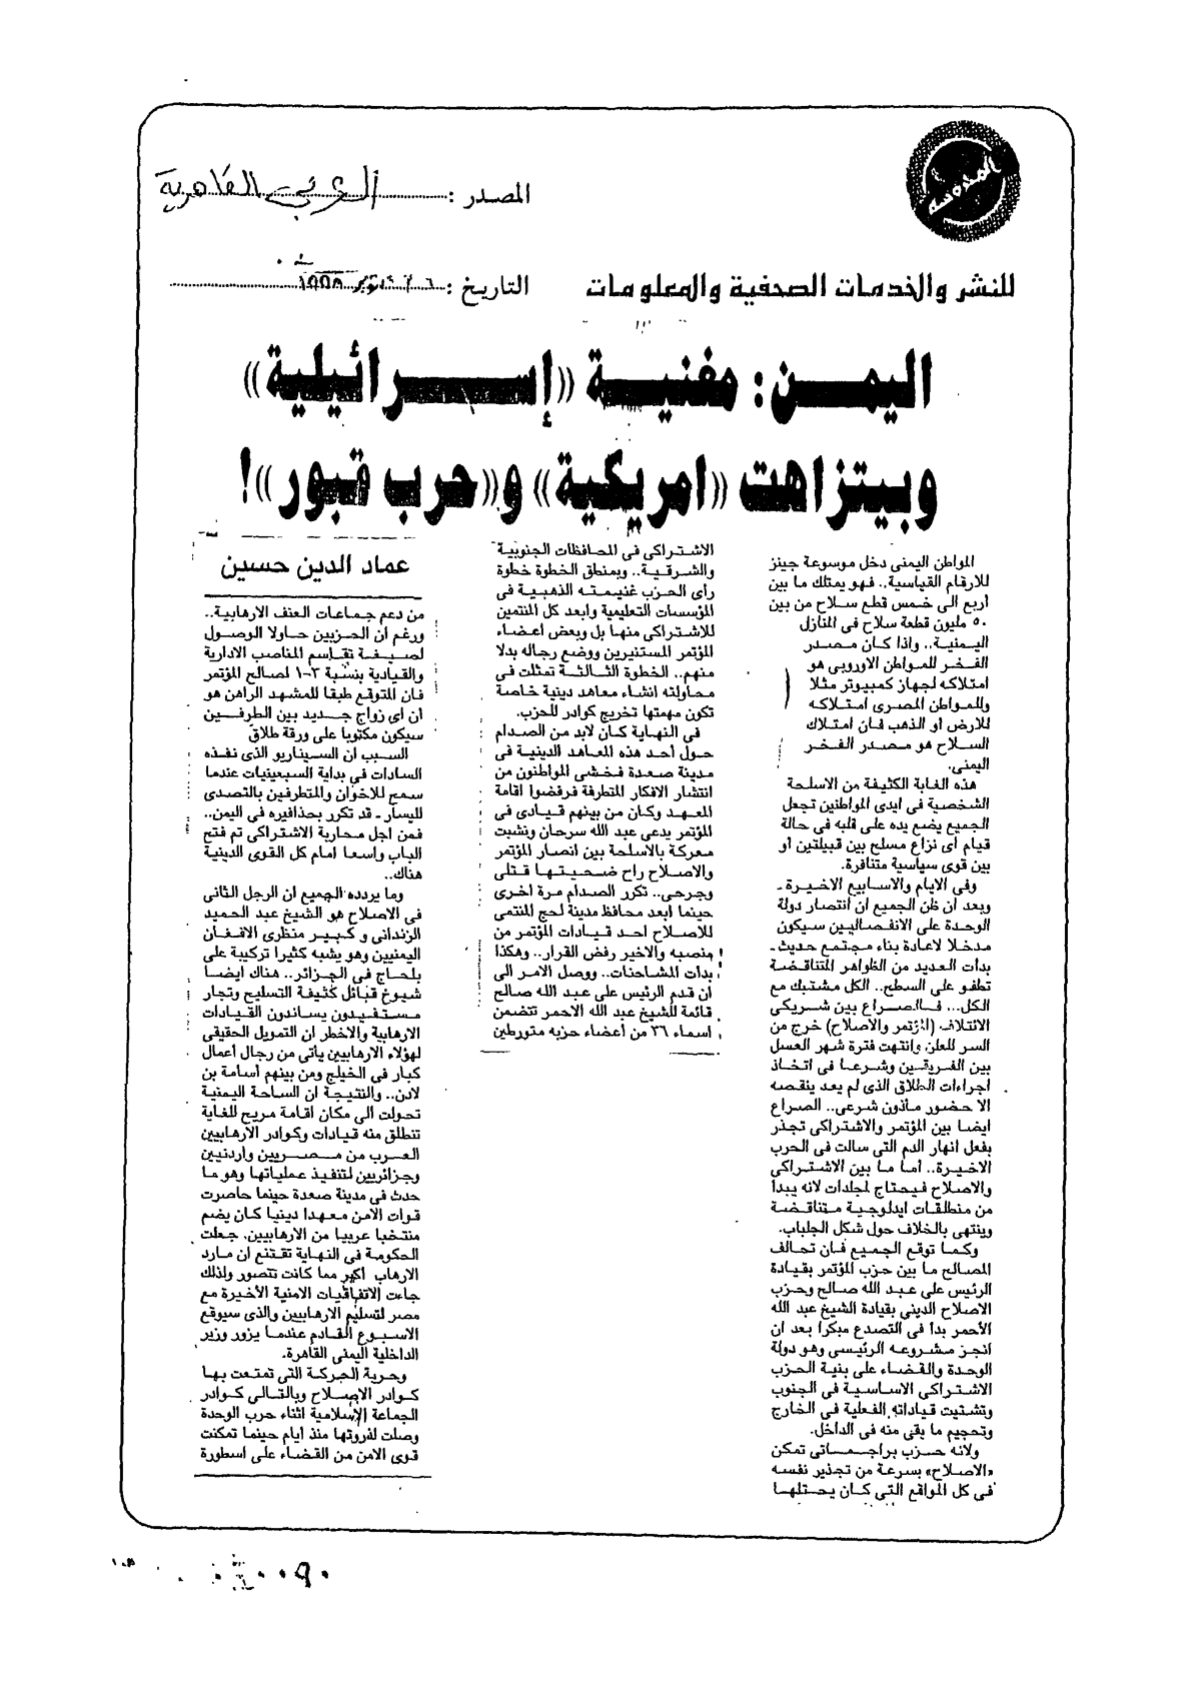 المدوسه
المصدر : العربي القاهرية
للنشر والخدمات الصحفية والمعلومات
التاريخ :
اليمن : مغنية «إسرائيلية»
وبيتزاهت «امريكية» و«حرب قبور»!
المواطن اليمنى دخل موسوعة جينز
للارقام القياسية.. فهو يمتلك ما بين
أربع الى خمس قطع سلاح من بين
٥٠ مليون قطعة سلاح فى المنازل
اليمنية.. واذا كان مصدر
الفخر للمواطن الاوروبى هو
امتلاكه لجهاز كمبيوتر مثلا
وللمواطن المصرى امتلاكه
للارض أو الذهب فان امتلاك
السلاح هو مصدر الفخر
اليمنى.
هذه الغابة الكثيفة من الاسلحة
الشخصية فى ايدى المواطنين تجعل
الجميع يضع يده على قلبه فى حالة
قيام اى نزاع مسلح بين قبيلتين أو
بين قوى سياسية متنافرة.
وفى الايام والاسابيع الاخيرة ـ
وبعد أن ظن الجميع ان انتصار دولة
الوحدة على الانفصاليين سيكون
مدخلا لاعادة بناء مجتمع حديث ـ
بدات العديد من الظواهر المتناقضة
تطفو على السطح.. الكل مشتبك مع
الكل... فالصراع بين شريكى
الائتلاف (المؤتمر والاصلاح) خرج من
السر للعلن وانتهت فترة شهر العسل
بين الفريقين وشرعا فى اتخاذ
اجراءات الطلاق الذى لم يعد ينقصه
الا حضور مأذون شرعى.. الصراع
ايضا بين المؤتمر والاشتراكى تجذر
بفعل انهار الدم التى سالت فى الحرب
الاخيرة.. أما ما بين الاشتراكى
والاصلاح فيحتاج لمجلدات لانه يبدأ
من منطلقات ايدلوجية متناقضة
وينتهى بالخلاف حول شكل الجلباب.
وكما توقع الجميع فان تحالف
المصالح ما بين حزب المؤتمر بقيادة
الرئيس على عبد الله صالح وحزب
الاصلاح الدينى بقيادة الشيخ عبد الله
الأحمر بدأ فى التصدع مبكرا بعد ان
انجز مشروعه الرئيسى وهو دولة
الوحدة والقضاء على بنية الحزب
الاشتراكى الاساسية فى الجنوب
وتشتيت قياداته الفعلية فى الخارج
وتحجيم ما بقى منه فى الداخل.
ولانه حزب براجماتى تمكن
«الاصلاح» بسرعة من تجذير نفسه
فى كل المواقع التى كان يحتلها
الاشتراكى فى المحافظات الجنوبية
والشرقية.. وبمنطق الخطوة خطوة
رأى الحزب غنيمته الذهبية فى
المؤسسات التعليمية وابعد كل المنتمين
للاشتراكى منها بل وبعض أعضاء
المؤتمر المستنيرين ووضع رجاله بدلا
منهم.. الخطوة الثالثة تمثلت فى
محاولته انشاء معاهد دينية خاصة
تكون مهمتها تخريج كوادر للحزب.
فى النهاية كان لابد من الصدام
حول أحد هذه المعاهد الدينية فى
مدينة صعدة فخشى المواطنون من
انتشار الافكار المتطرفة فرفضوا اقامة
المعهد وكان من بينهم قيادى فى
المؤتمر يدعى عبد الله سرحان ونشبت
معركة بالاسلحة بين انصار المؤتمر
والاصلاح راح ضحيتها قتلى
وجرحى.. تكرر الصدام مرة اخرى
حينما أبعد محافظ مدينة لحج المنتمى
للاصلاح احد قيادات المؤتمر من
منصبه والاخير رفض القرار.. وهكذا
بدات المشاحنات.. ووصل الامر الى
أن قدم الرئيس على عبد الله صالح
قائمة للشيخ عبد الله الاحمر تتضمن
اسماء ٣٦ من أعضاء حزبه متورطين
عماد الدين حسين
من دعم جماعات العنف الارهابية..
ورغم أن الحزبين حاولا الوصول
لصيغة تقاسم المناصب الادارية
والقيادية بنسبة ٣-١ لصالح المؤتمر
فان المتوقع طبقا للمشهد الراهن هو
أن أى زواج جديد بين الطرفين
سيكون مكتوبا على ورقة طلاق
السبب ان السيناريو الذى نفذه
السادات فى بداية السبعينيات عندما
سمح للاخوان والمتطرفين بالتصدى
لليسار ـ قد تكرر بحذافيره فى اليمن..
فمن أجل محاربة الاشتراكى تم فتح
الباب واسعا امام كل القوى الدينية
هناك..
وما يردده الجميع ان الرجل الثانى
فى الاصلاح هو الشيخ عبد الحميد
الزندانى و كبير منظرى الافغان
اليمنيين وهو يشبه كثيرا تركيبة على
بلحاج فى الجزائر.. هناك ايضا
شيوخ قبائل كثيفة التسليح وتجار
مستفيدون يساندون القيادات
الارهابية والاخطر ان التمويل الحقيقى
لهؤلاء الارهابيين يأتى من رجال أعمال
كبار فى الخليج ومن بينهم أسامة بن
لادن.. والنتيجة ان الساحة اليمنية
تحولت الى مكان اقامة مريح للغاية
تنطلق منه قيادات وكوادر الارهابيين
العرب من مصريين واردنيين
وجزائريين لتنفيذ عملياتها وهو ما
حدث فى مدينة صعدة حينما حاصرت
قوات الامن معهدا دينيا كان يضم
منتخبا عربيا من الارهابيين. جعلت
الحكومة فى النهاية تقتنع ان مارد
الارهاب اكبر مما كانت تتصور ولذلك
جاءت الاتفاقيات الامنية الأخيرة مع
مصر لتسليم الارهابيين والذى سيوقع
الاسبوع القادم عندما يزور وزير
الداخلية اليمنى القاهرة.
وحرية الحركة التى تمتعت بها
كوادر الاصلاح وبالتالى كوادر
الجماعة الإسلامية اثناء حرب الوحدة
وصلت لذروتها منذ أيام حينما تمكنت
قوى الامن من القضاء على اسطورة